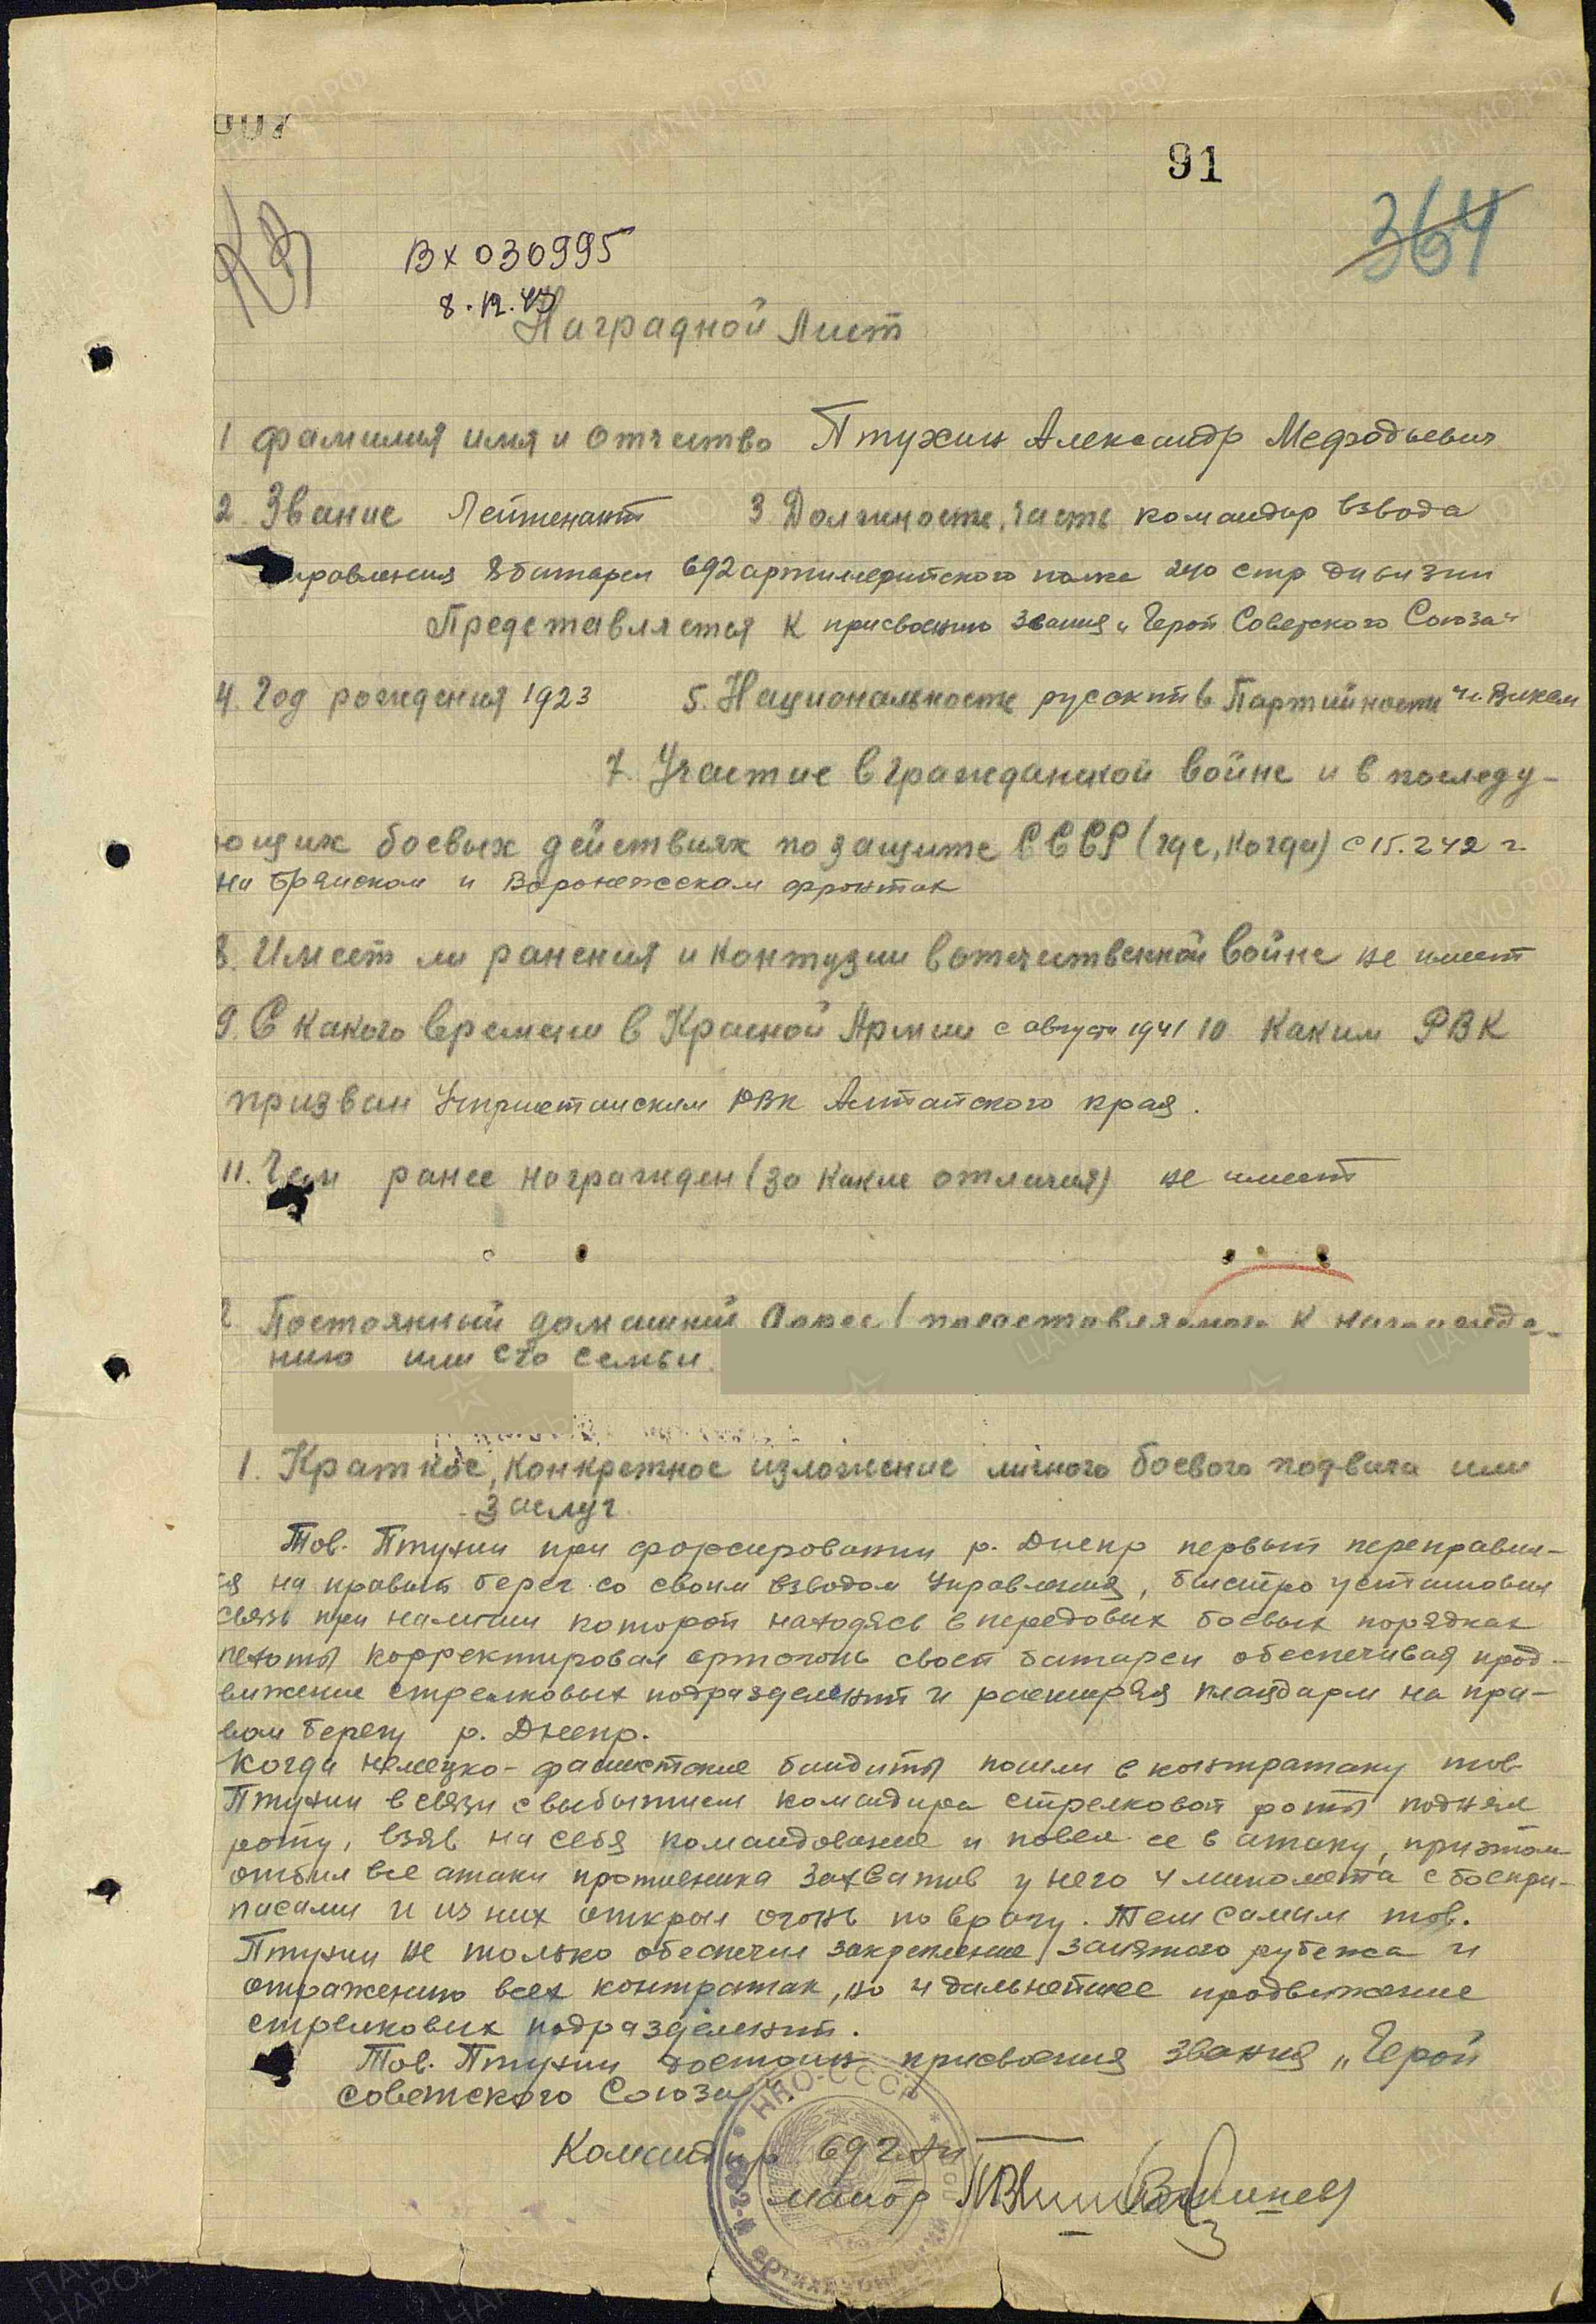 007
91
364
КВ
Вх 030995
8.12.43
Наградной Лист
1 Фамилия имя и отчество Птухин Александр Мефодьевич
2. Звание Лейтенант 3 Должность, часть командир взвода
управления 8 батареи 692 артиллерийского полка 240 стр дивизии
Представляется к присвоению звания „Герой Советского Союза“
4. Год рождения 1923 5. Национальность русский 6 Партийность чл. Влксм
7. Участие в гражданской войне и в последу-
ющих боевых действиях по защите СССР (где, когда) с 15.2 42 г.
на Брянском и Воронежском фронтах
8. Имеет ли ранения и контузии в отечественной войне не имеет
9. С какого времени в Красной Армии с августа 1941 10 Каким РВК
призван Упристанским РВК Алтайского края.
11. Чем ранее награжден (за какие отличия) не имеет
2 Постоянный домашний адрес (представляемого к награжде-
нию или его семьи
1. Краткое, конкретное изложение личного боевого подвига или
заслуг.
Тов. Птухин при форсировании р. Днепр первый переправил-
ся на правый берег со своим взводом управления, быстро установил
связь при наличии которой находясь в передовых боевых порядках
пехоты корректировал артогонь своей батареи обеспечивая прод-
вижение стрелковых подразделений и расширяя плацдарм на пра-
вом берегу р. Днепр.
Когда немецко-фашистские бандиты пошли в контратаку тов
Птухин в связи с выбытием командира стрелковой роты поднял
роту, взяв на себя командование и повел ее в атаку, приэтом
отбил все атаки противника захватив у него 4 миномета с боепри-
пасами и из них открыл огонь по врагу. Тем самым тов.
Птухин не только обеспечил закрепление занятого рубежа и
отражению всех контратак, но и дальнейшее продвижение
стрелковых подразделений.
Тов. Птухин достоин присвоения звания „Герой
Советского Союза“.
Командир 692 АП
майор
НКО-СССР